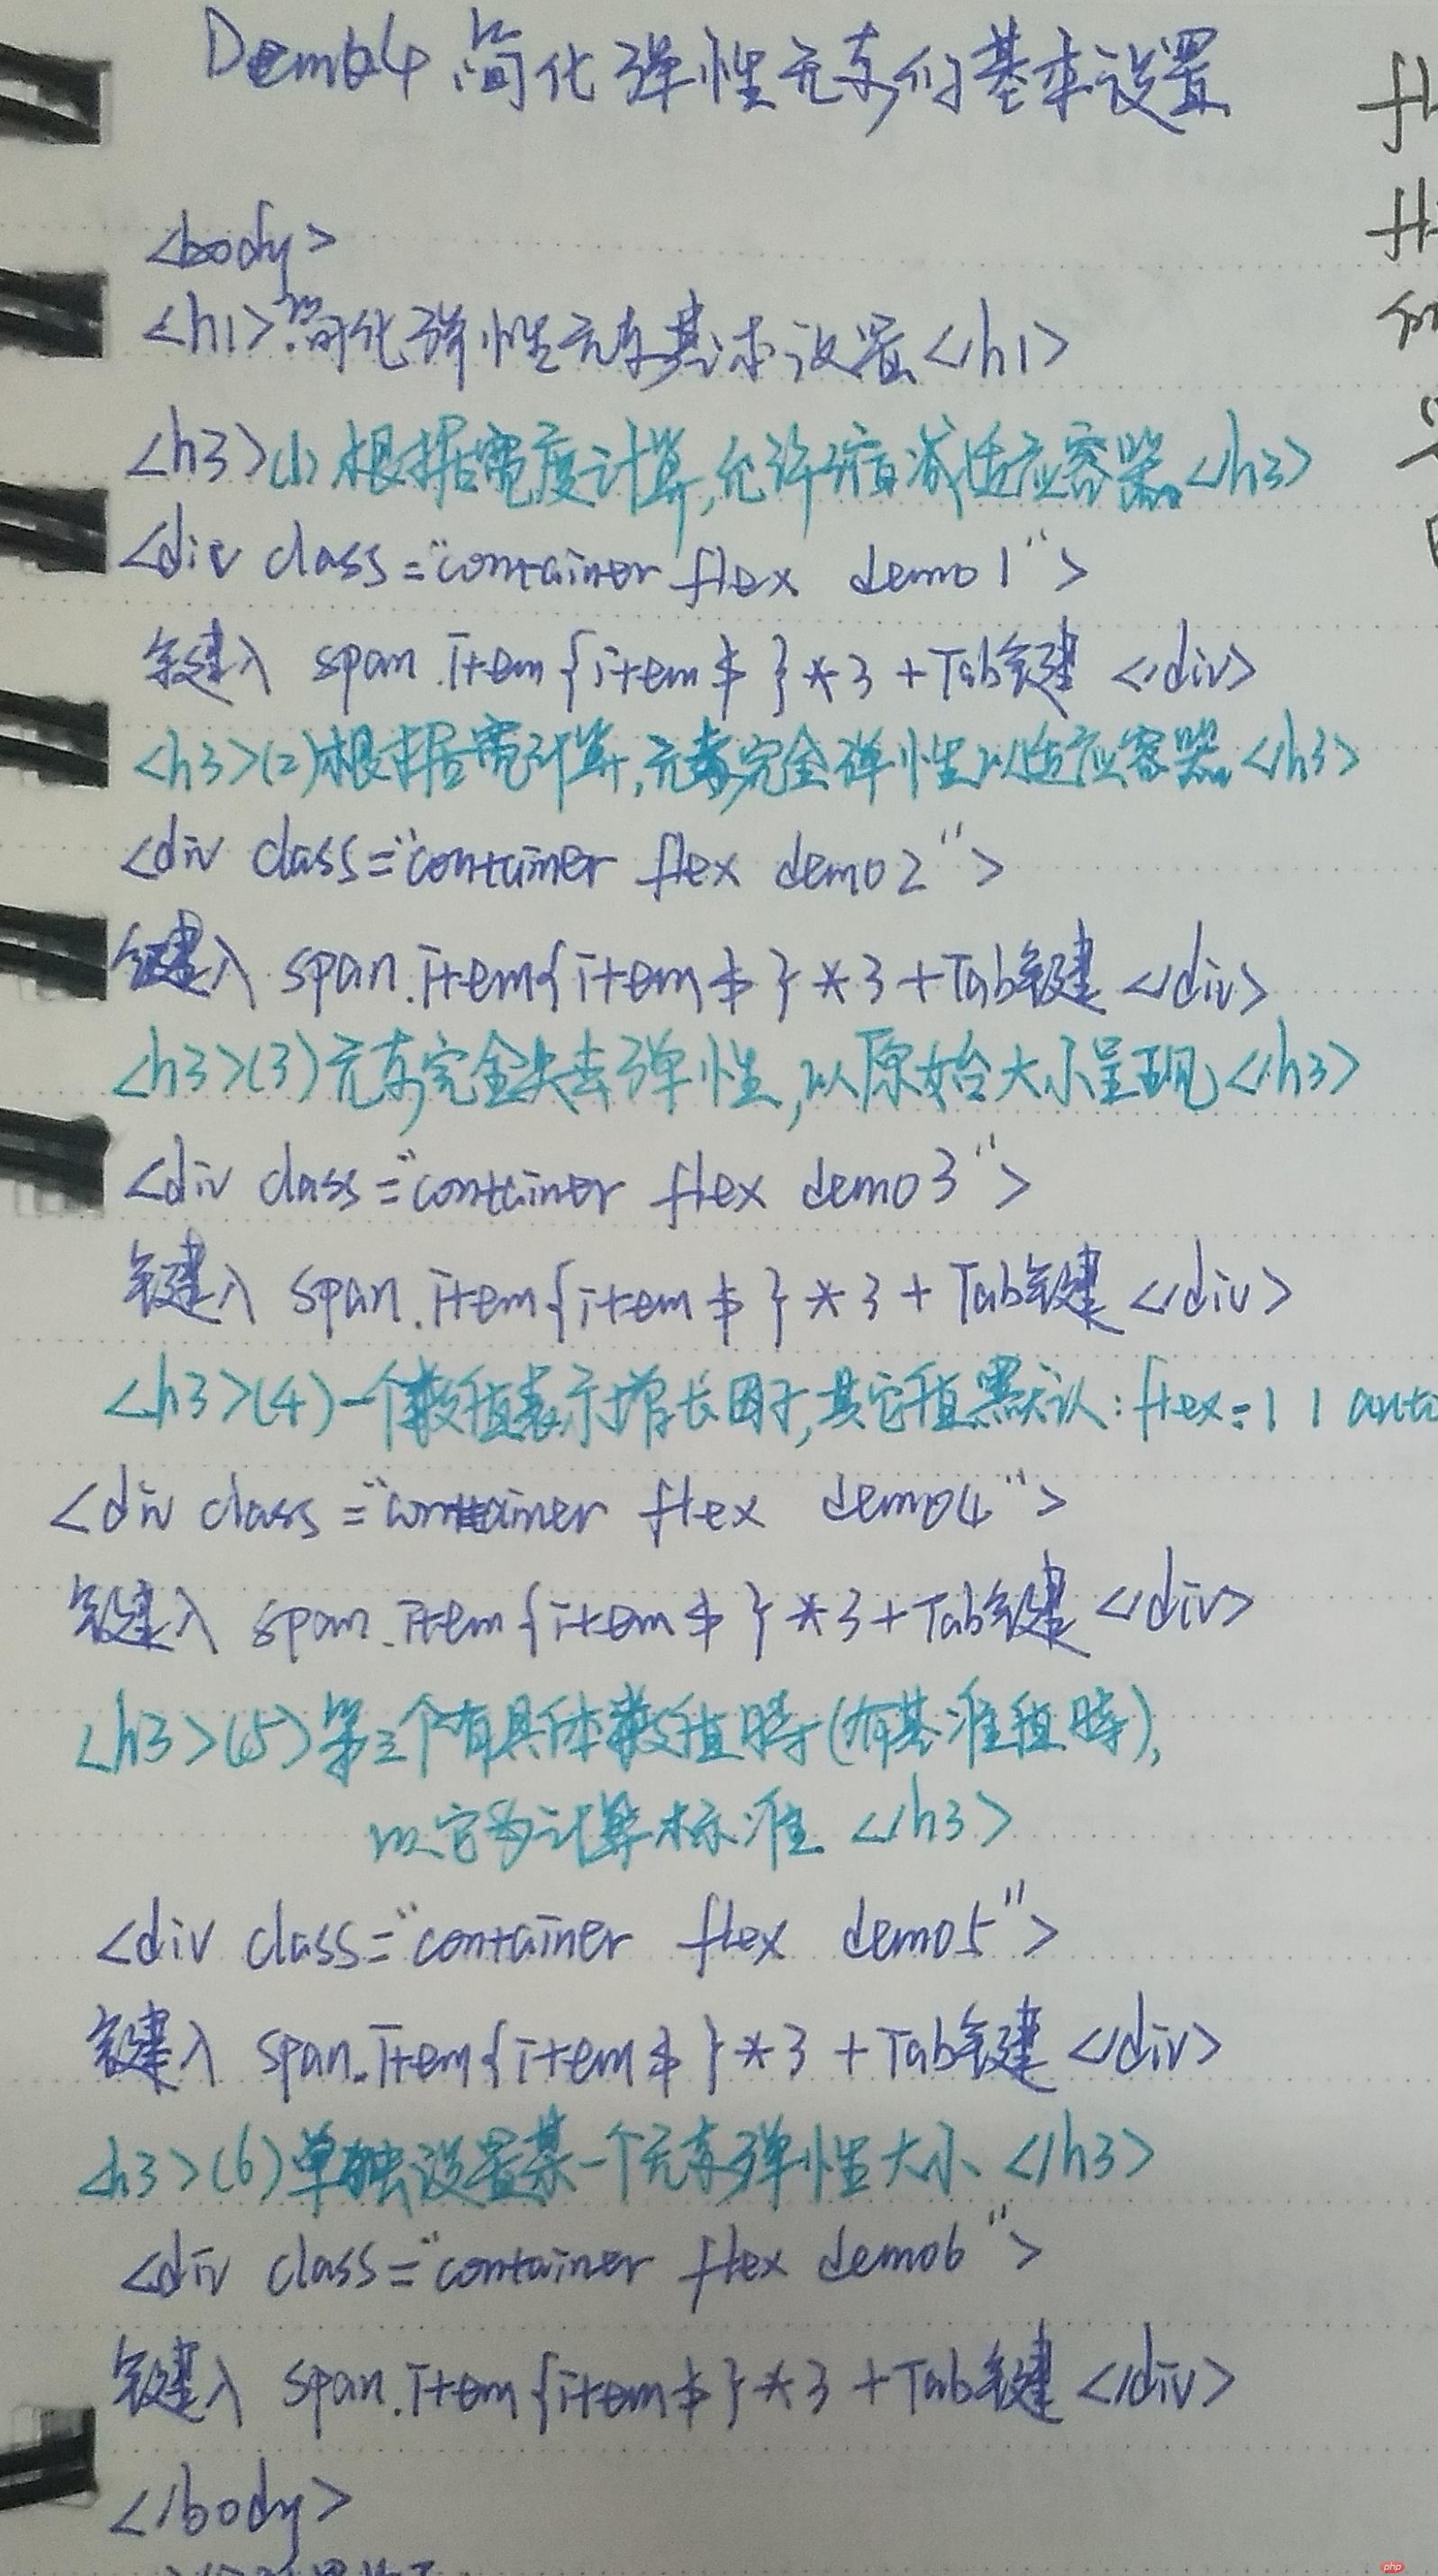 Demo4 简化弹性元素的基本设置
<body>
<h1>简化弹性元素基本设置</h1>
<h3>(1)根据宽度计算,允许缩减适应容器</h3>
<div class="container flex demo1">
键入 span.item{item$}*3+Tab键 </div>
<h3>(2)根据宽计算,元素完全弹性以适应容器</h3>
<div class="container flex demo2">
键入 span.item{item$}*3+Tab键 </div>
<h3>(3)元素完全失去弹性,以原始大小呈现</h3>
<div class="container flex demo3">
键入 span.item{item$}*3+Tab键 </div>
<h3>(4)一个数值表示增长因子,其它值默认:flex=1 1 auto
<div class="container flex demo4">
键入 span.item{item$}*3+Tab键 </div>
<h3>(5)第三个有具体数值时(有基准值时),
以它为计算标准 </h3>
<div class="container flex demo5">
键入 span.item{item$}*3+Tab键 </div>
h3>(6)单独设置某一个元素弹性大小 </h3>
<div class="container flex demo6">
键入 span.item{item$}*3+Tab键 </div>
</body>
php